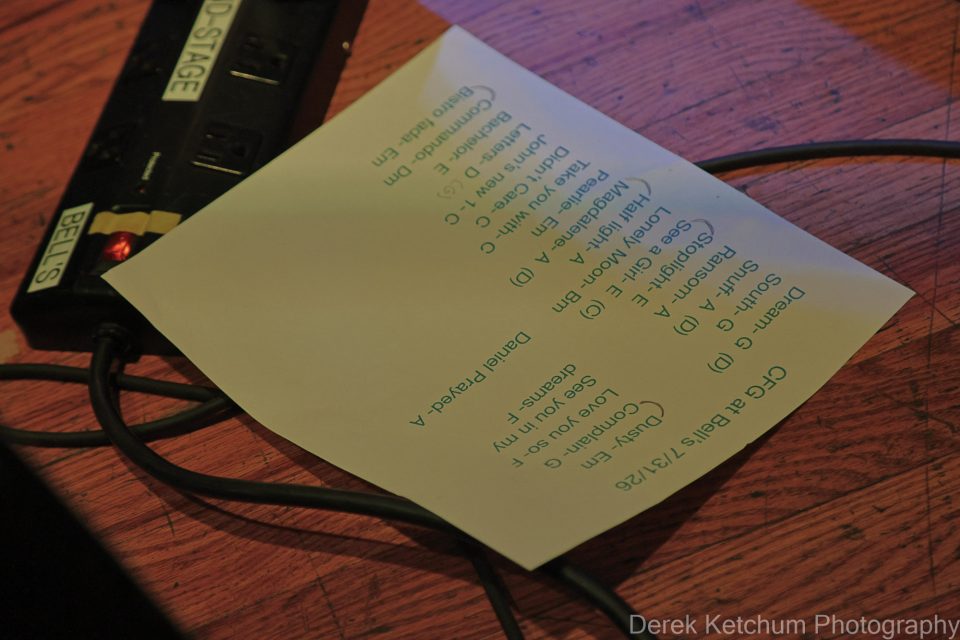 CFG at Bell's 7/31/26
Dream- G (D)
South- G
Snuff- A (D)
Ransom- A
Stoplight- E
See a Girl- E (C)
Lonely Moon- Bm
Half light- A
Magdalene- A (D)
Pearlie- Em
Take you with- C
Didn't Care- C
John's new 1- C
Letters- D (G)
Bachelor- E
Commando- Dm
Bistro fada- Em
Dusty- Em
Complain- G
Love you so- F
See you in my
dreams- F
Daniel Prayed- A
D-STAGE
BELL'S
Derek Ketchum Photography